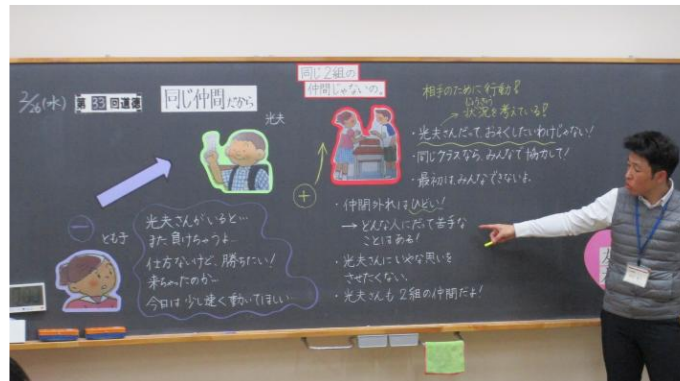 2/26(水)
第33回道徳
同じ仲間だから
光夫
同じ2組の
仲間じゃないの。
相手のために行動!
じょうきょう
→状況を考えている!
・光夫さんだって、おそくしたいわけじゃない!
・同じクラスなら、みんなで協力して!
・最初は、みんなできないよ。
+
・仲間外れはひどい!
→どんな人にだって苦手な
ことはあるよ!
・光夫さんにいやな思いを
させたくない。
・光夫さんも2組の仲間だよ!
−
とも子
光夫さんがいると…
また負けちゃうよ…
仕方ないけど、勝ちたい!
来ちゃったのか…
今日は少し速く動いてほしい…